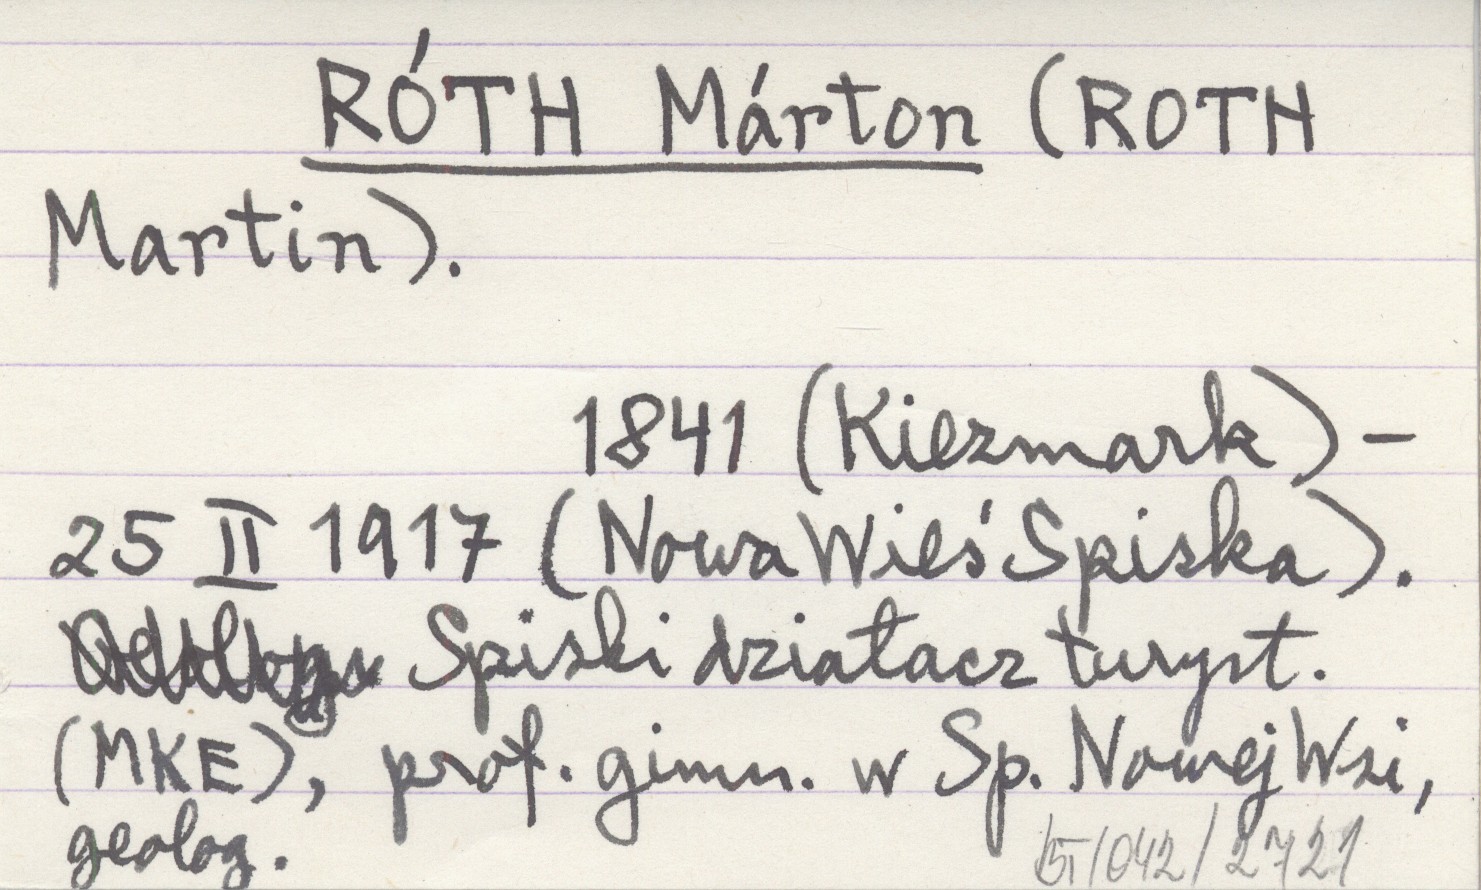 RÓTH Márton (ROTH
Martin).
1841 (Kiezmark) –
25 II 1917 (Nowa Wieś Spiska).
Spiski działacz turyst.
(MKE), prof. gimn. w Sp. Nowej Wsi,
geolog.
/042/2721